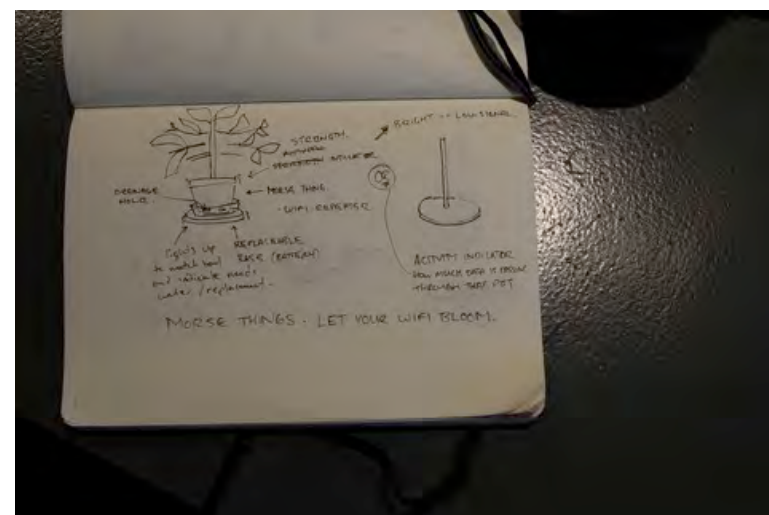 STRENGTH.
INDICATOR
BRIGHT -- LOW SIGNAL.
DRAINAGE
HOLE.
MORSE THING.
- WIFI REPEATER
Lights up
to match bowl
and indicate needs
water / replacement.
REPLACEABLE
BASE (BATTERY)
ACTIVITY INDICATOR
HOW MUCH DATA IS PASSING
THROUGH THIS POT
MORSE THINGS - LET YOUR WIFI BLOOM.